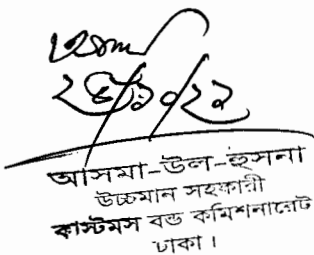 আসমা-উল-হুসনা
উচ্চমান সহকারী
কাস্টমস বন্ড কমিশনারেট
ঢাকা।